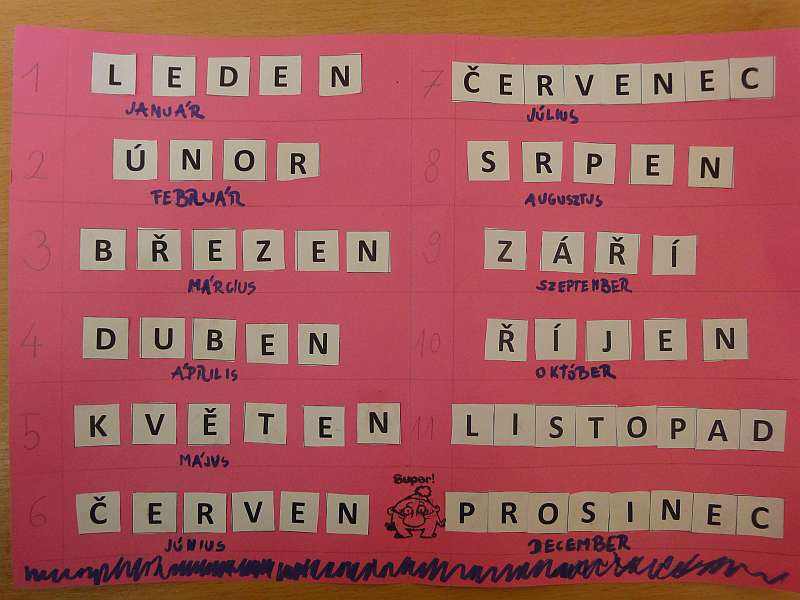 1 LEDEN
JANUÁR
2 ÚNOR
FEBRUÁR
3 BŘEZEN
MÁRCIUS
4 DUBEN
ÁPRILIS
5 KVĚTEN
MÁJUS
6 ČERVEN
JÚNIUS
7 ČERVENEC
JÚLIUS
8 SRPEN
AUGUSZTUS
9 ZÁŘÍ
SZEPTEMBER
10 ŘÍJEN
OKTÓBER
11 LISTOPAD
Super!
PROSINEC
DECEMBER